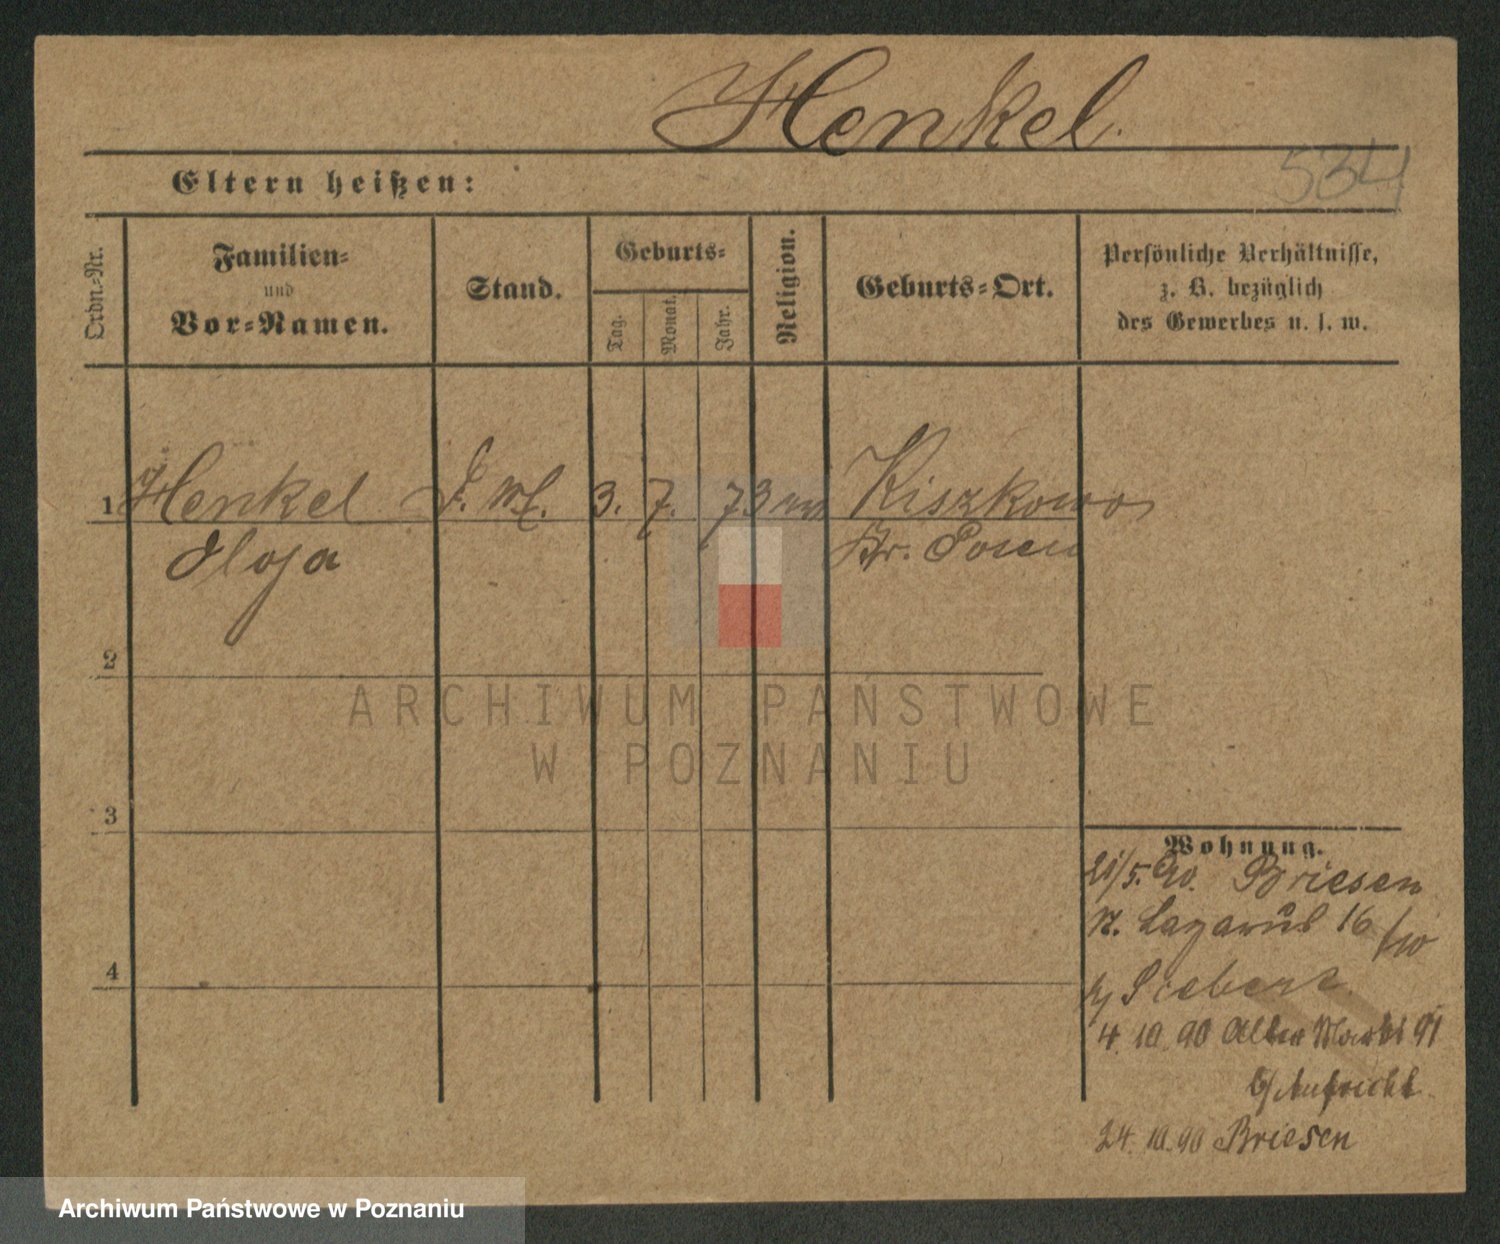 Henkel.
534
Eltern heißen:
Ordn.-Nr.
Familien-
und
Vor-Namen.
Stand.
Geburts-
Tag.
Monat.
Jahr.
Religion.
Geburts-Ort.
Persönliche Verhältnisse,
z. B. bezüglich
des Gewerbes u. s. w.
1 Henkel 3. 7. 73 Kiszkowo
Olga Kr. Posen
2
3
4
ARCHIWUM PAŃSTWOWE
W POZNANIU
Wohnung.
21/5. 90. Briesen
St. Lazarus 16
b/ Siebert
4. 10. 90 Alter Markt 91
b/ Aufricht
24. 10. 90 Briesen
Archiwum Państwowe w Poznaniu